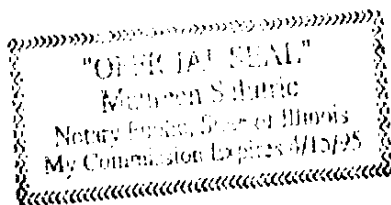 "OFFICIAL SEAL"
Maureen
Notary Public, State of Illinois
My Commission Expires 4/15/95